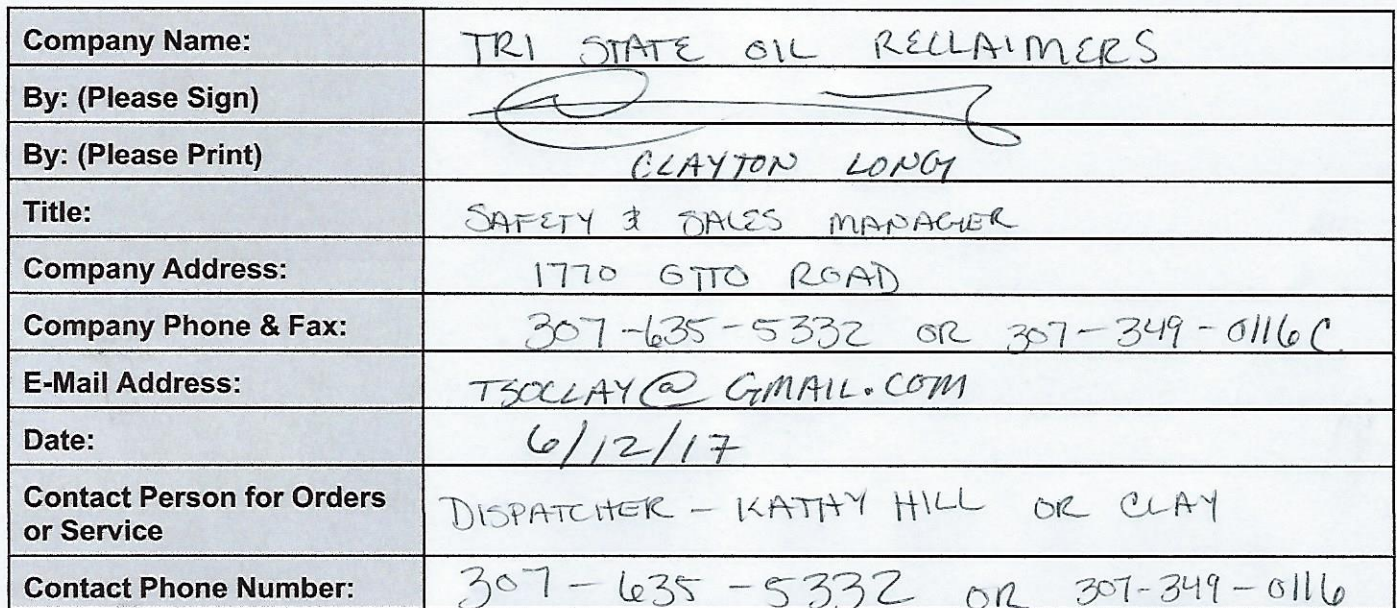 Company Name: TRI STATE OIL RECLAIMERS
By: (Please Sign)
By: (Please Print) CLAYTON LONG
Title: SAFETY & SALES MANAGER
Company Address: 1770 OTTO ROAD
Company Phone & Fax: 307-635-5332 OR 307-349-0116 C
E-Mail Address: TSOCLAY@GMAIL.COM
Date: 6/12/17
Contact Person for Orders
or Service DISPATCHER - KATHY HILL OR CLAY
Contact Phone Number: 307-635-5332 OR 307-349-0116